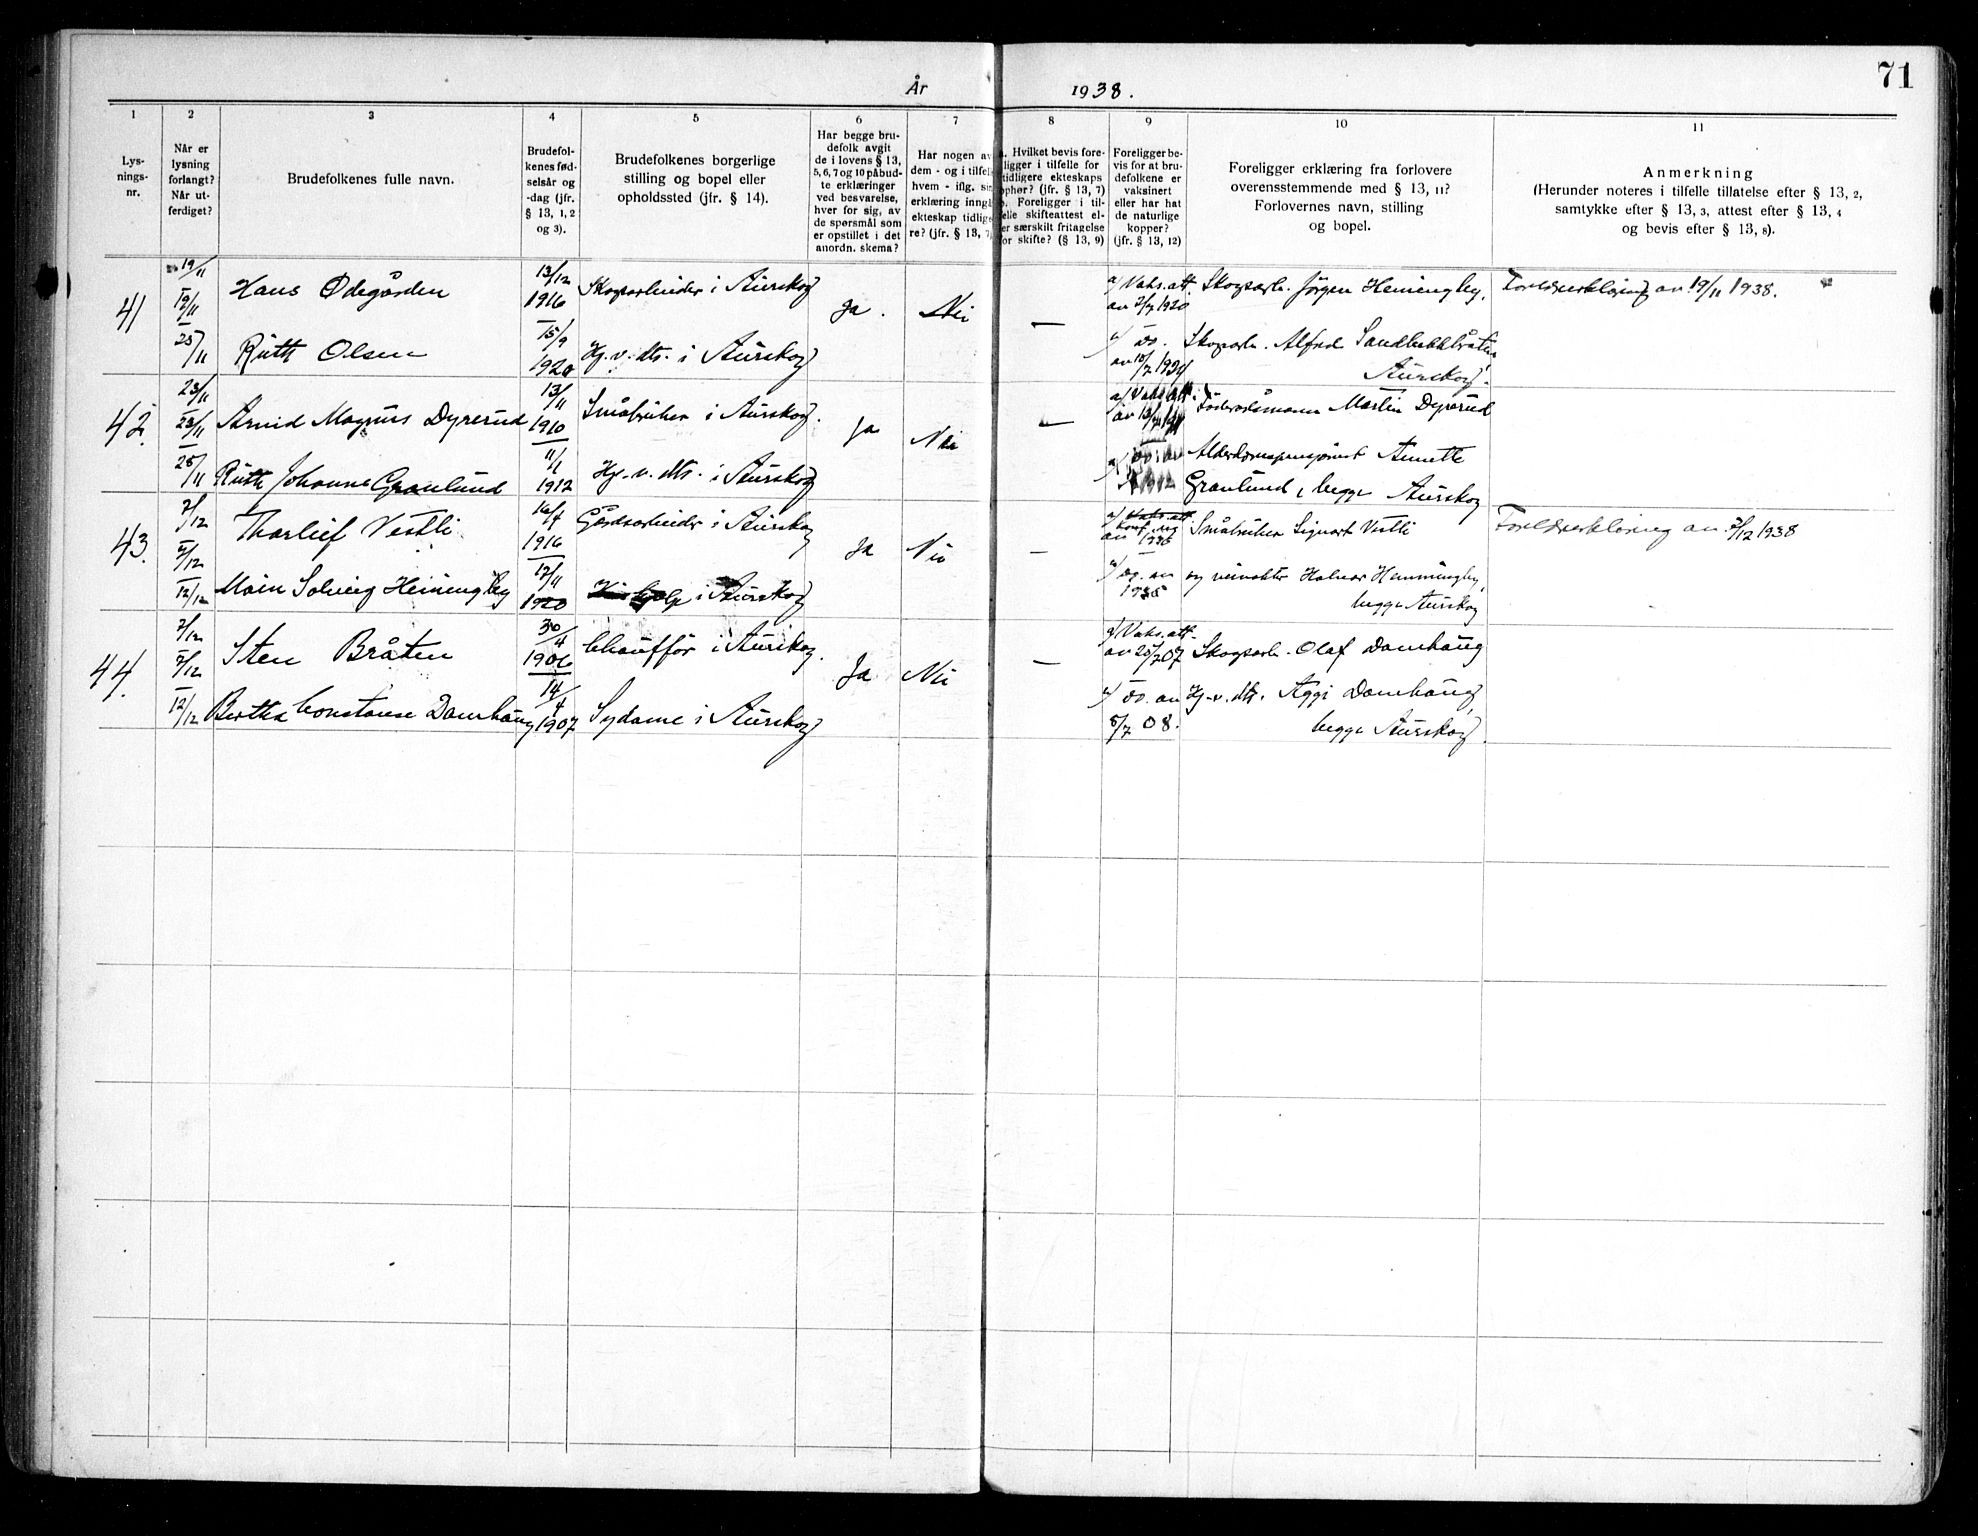 71
År 1938.
1 2 3 4 5 6 7 8 9 10 11
Lys-
nings-
nr.
Når er
lysning
forlangt?
Når ut-
ferdiget?
Brudefolkenes fulle navn.
Brudefol-
kenes fød-
selsår og
-dag (jfr.
§ 13, 1, 2
og 3).
Brudefolkenes borgerlige
stilling og bopel eller
opholdssted (jfr. § 14).
Har begge bru-
defolk avgit
de i lovens § 13,
5, 6, 7 og 10 påbud-
te erklæringer
ved besvarelse,
hver for sig, av
de spørsmål som
er opstillet i det
anordn. skema?
Har nogen av
dem - og i tilfel
hvem - iflg. sin
erklæring inngå
ekteskap tidlige
re? (jfr. § 13, 7
. Hvilket bevis fore-
ligger i tilfelle for
tidligere ekteskaps
ophør? (jfr. § 13, 7)
. Foreligger i til-
elle skifteattest el-
er særskilt fritagelse
for skifte? (§ 13, 9)
Foreligger be-
vis for at bru-
defolkene er
vaksinert
eller har hat
de naturlige
kopper?
(jfr. § 13, 12)
Foreligger erklæring fra forlovere
overensstemmende med § 13, 11?
Forlovernes navn, stilling
og bopel.
Anmerkning
(Herunder noteres i tilfelle tillatelse efter § 13, 2,
samtykke efter § 13, 3, attest efter § 13, 4
og bevis efter § 13, 8).
41
19/11
19/11
25/11
Hans Ødegården
13/12
1916
Skogsarbeider i Aurskog
Ja.
Nei
—
a/ Vaks.att.
av 2/7 1920
Skogsarb. Jörgen Heiningby,
Foreldreerklæring av 19/11 1938.
Ruth Olsen
15/9
1920
Hj. v. dts. i Aurskog
Do.
Skogsarb. Alfred Sandbekkbråten,
Aurskog.
42.
23/11
23/11
25/11
Arvid Magnus Dyrerud
13/11
1910
Småbruker i Aurskog.
Ja
Nei
—
a/ Vaks. att.
Föderådsmann Martin Dyrerud
Ruth Johanne Granlund
11/1
1912
Hj. v. dts. i Aurskog
Alderdomspensjonist Annette
Granlund, begge Aurskog
43.
7/12
7/12
12/12
Thorleif Vestli
16/4
1916
Gårdsarbeider i Aurskog
Ja
Nei
—
a/ Vaks. att.
Småbruker Sigvart Vestli
Foreldreerklæring av 7/12 1938
Moien Solveig Heiningby
17/11
1920
i Aurskog
Do. av
1935
og veivokter Halvor Hemmingby,
begge Aurskog
44.
7/12
7/12
12/12
Sten Bråten
30/4
1906
Chauffør i Aurskog.
Ja
Nei
—
a/ Vaks. att.
av 20/7 07
Skogsarb. Olaf Damhaug
Bertha Constanse Damhaug
14/4
1907
Sydame i Aurskog
Do. av
8/7 08.
Hj. v. dts. Aggi Damhaug,
begge Aurskog.